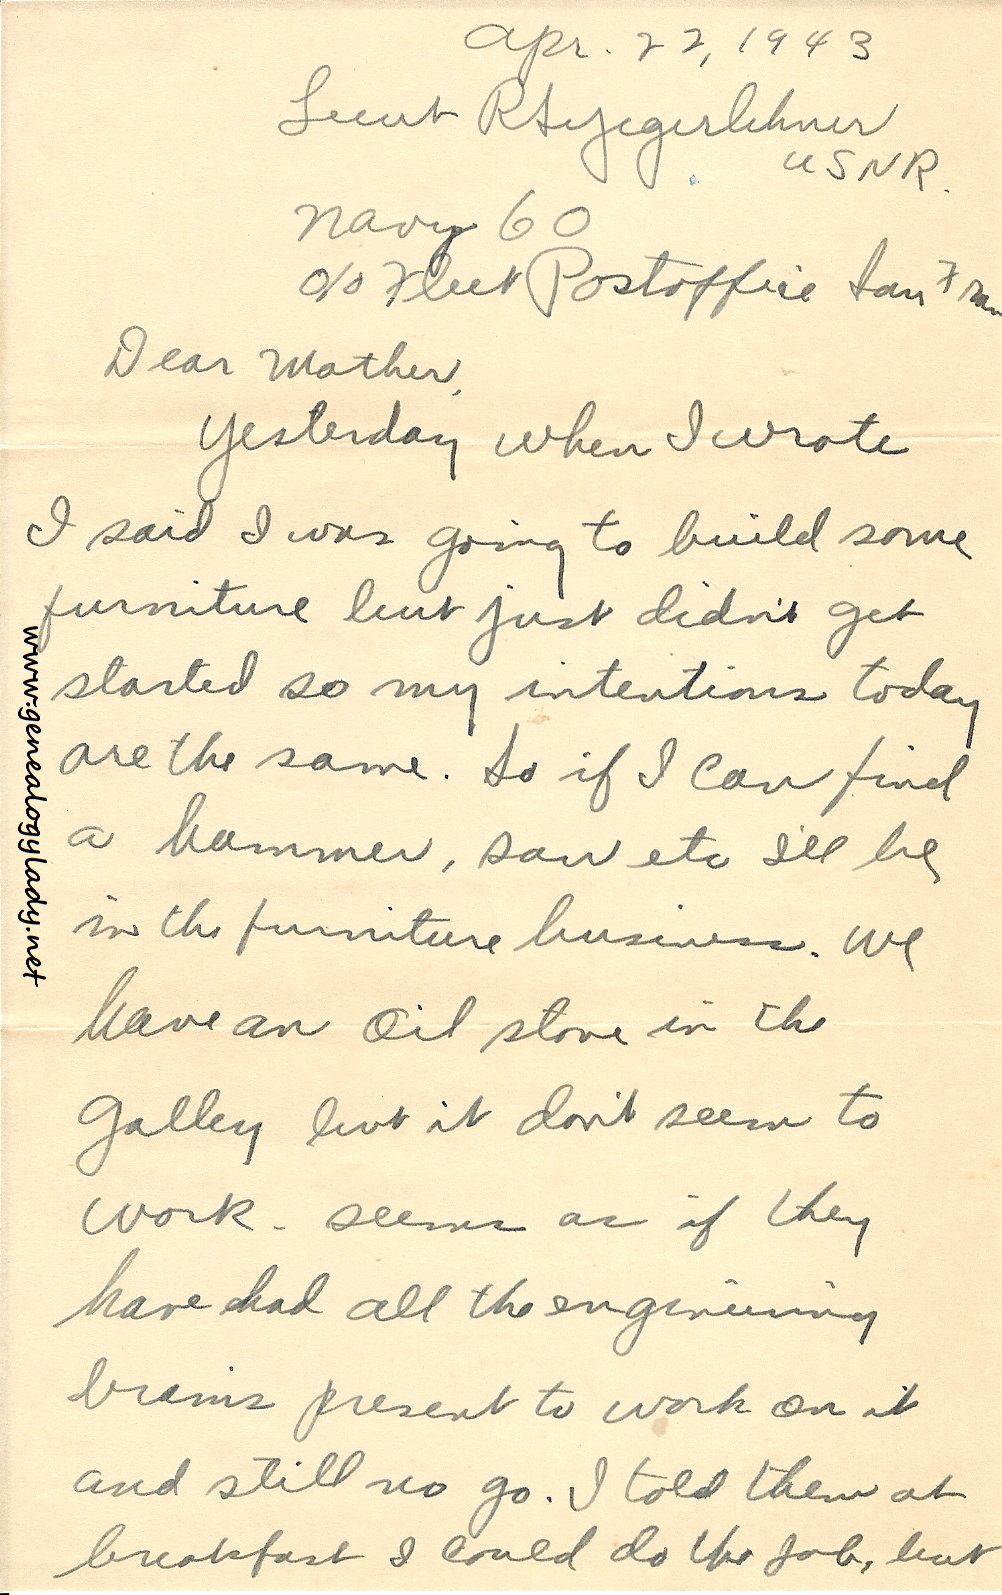 Apr. 22, 1943
Lieut R S Yegerlehner
USNR.
Navy 60
c/o Fleet Postoffice San Fran
Dear Mother,
Yesterday when I wrote
I said I was going to build some
furniture but just didn't get
started so my intentions today
are the same. So if I can find
a hammer, saw etc I'll be
in the furniture business. We
have an Oil stove in the
Galley but it don't seem to
work - seems as if they
have had all the engineering
brains present to work on it
and still no go. I told them at
breakfast I could do the job, but
www.genealogylady.net